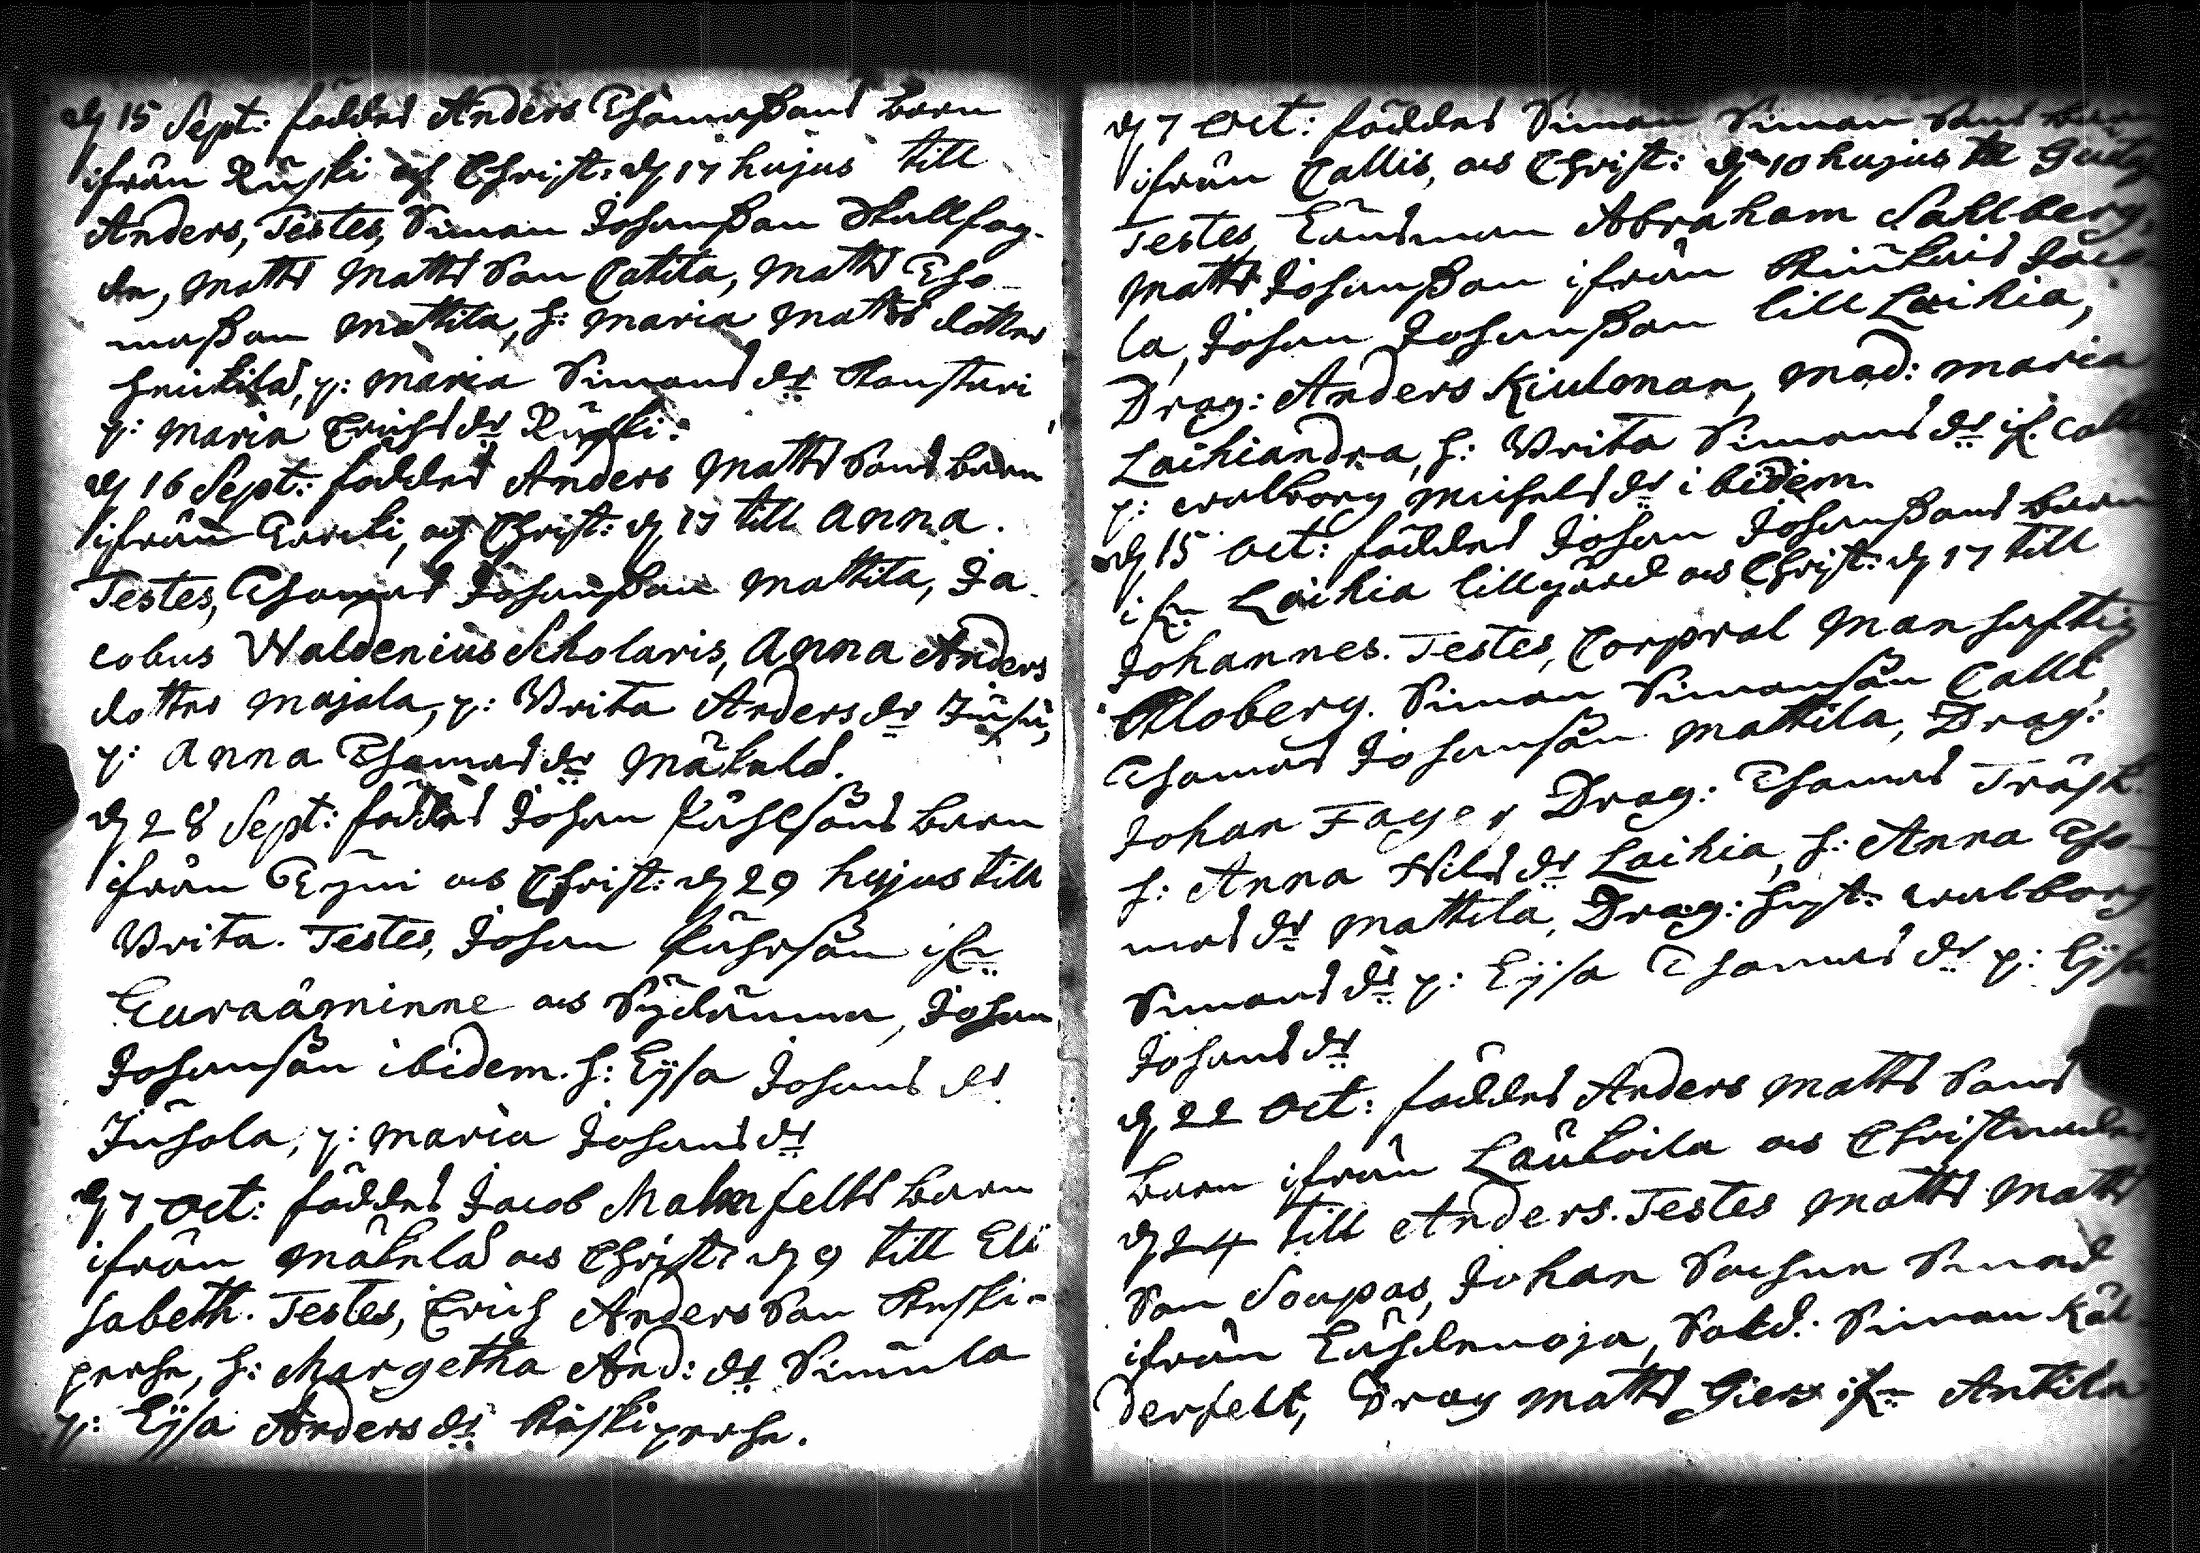 dj 15 Sept: föddes Anders Thomaßons barn
ifrån Rüski och Christ: dj 17 hujus till
Anders, Testes, Simon Johanßon Skallfog-
de, Matts Matts Son Catila, Matts Tho-
maßon Mattila, h: Maria Matts dotter
p: Maria Simons dr
p: Maria Erichs dr Rüski.
dj 16 Sept: föddes Anders Matts Sons barn
ifrån och Christ: dj 17 till Anna.
Testes, Thomas Johanßon Mattila, Ja-
cobus Waldenius Scholaris, Anna Anders
dotter Majala, p: Brita Anders dr
p: Anna Thomas dr Mäkelä.
dj 28 Sept: föddes Johan Påhlsöns barn
ifrån och Christ: dj 29 hujus till
Brita. Testes, Johan ifr
Euraåminne och Johan
Johansön ibidem. h: Lysa Johans dr
Jusola, p: Maria Johans dr
dj 7 Oct: föddes Jacob Malmfelts barn
ifrån Mäkelä och Christ: dj 9 till Eli
sabeth. Testes, Erich Anders Son Ruski-
perhe, h: Margetha And: dr Simula
p: Lysa Anders dr Ruskiperhe.
dj 7 Oct: föddes Simon Simon Sons barn
ifrån Callis, och Christ: dj 10 hujus till
Testes, Länsman Abraham Sahlberg,
Matts Johanßon ifrån
la, Johan Johanßon lill Laihia,
Drag: Anders Kiulman, Mad: Maria
Laihiandra, h: Brita Simons dr if.
p: Walborg Michels dr ibidem.
dj 15 Oct: föddes Johan Johanßons barn
ifr Laihia lillgård och Christ: dj 17 till
Johannes. Testes, Corpral Manhaftig
Simon Simonsön Calli,
Thomas Johansön Mattila, Drag:
Johan Fager, Drag: Thomas Träsk
h: Anna Nils dr Laihia, h: Anna Tho-
mas dr Mattila, Drag: hust: Walborg
Simons dr p: Lysa Thomas dr p: Lysa
Johans dr
dj 22 Oct: föddes Anders Matts Sons
barn ifrån Laukoila och Christnades
dj 24 till Anders. Testes Matts Matts
Son Soupas, Johan
ifrån Sold: Simon Käl-
derfelt, Drag Matts Giers ifr Antila